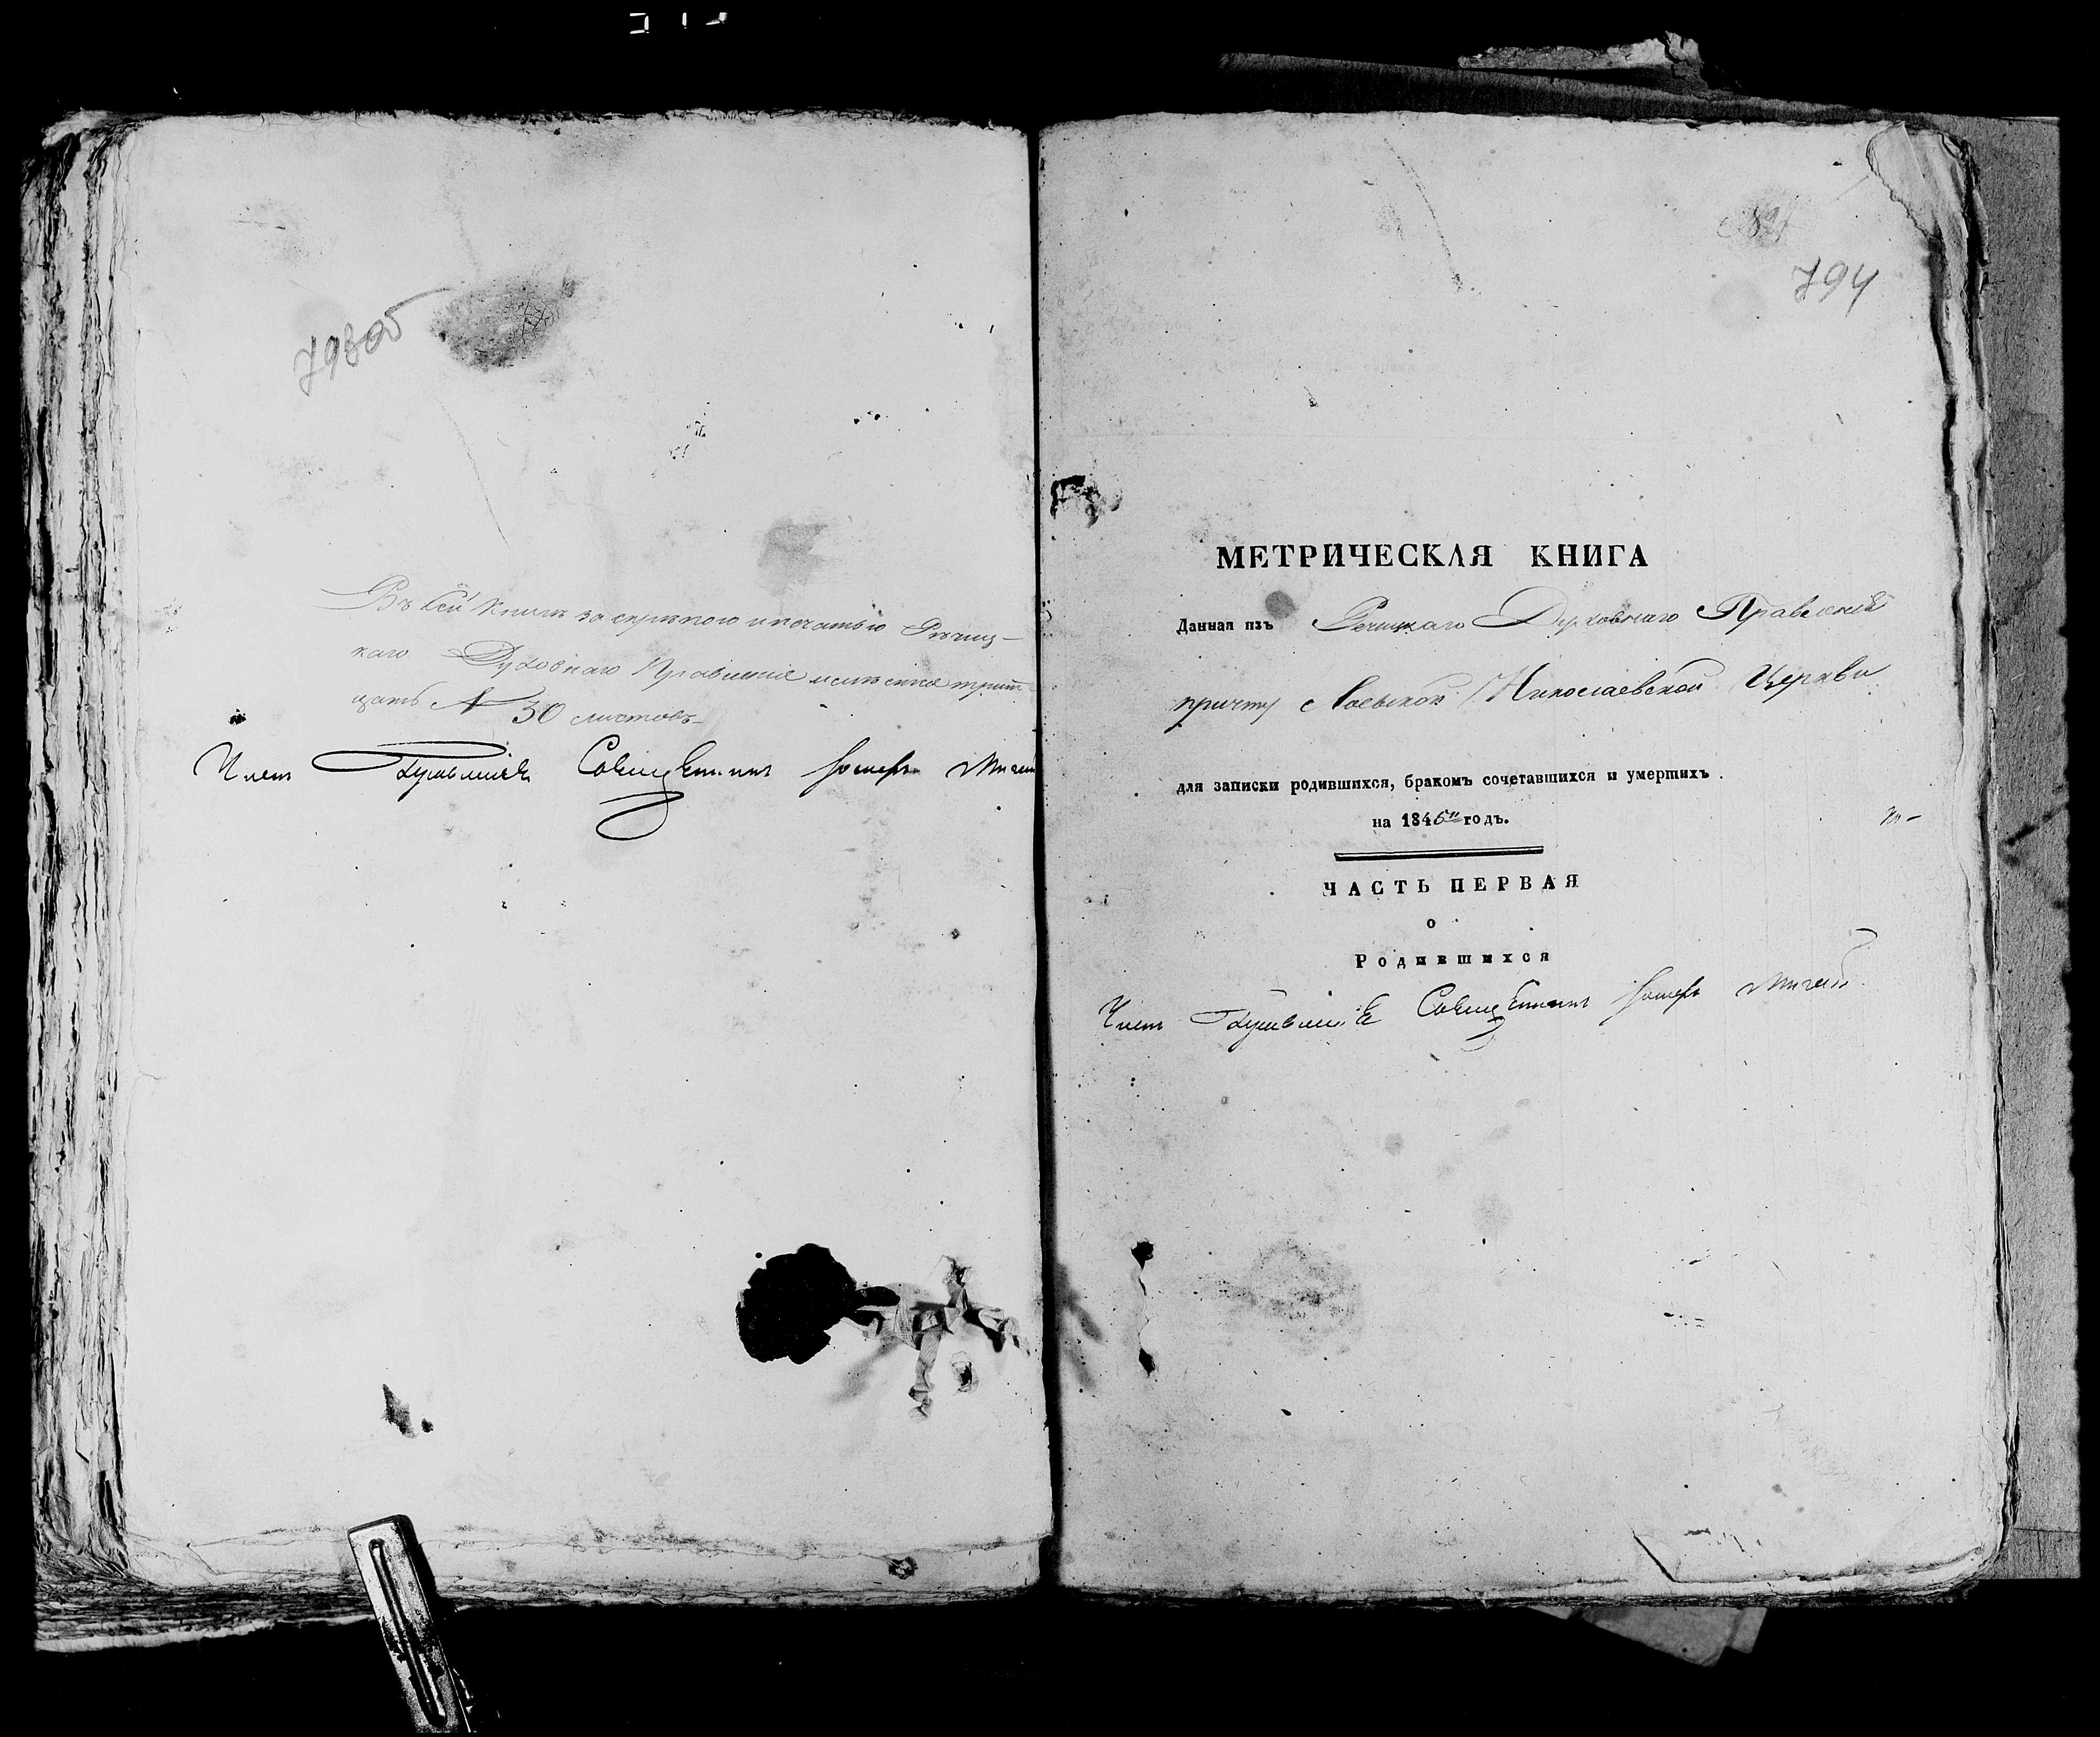 793об
Въ сей книгѣ за скрѣпою и печатью Рѣчиц-
каго Духовнаго Правленія исписанныхъ трит-
цать № 30 листовъ
Членъ Правленія Священникъ
794
МЕТРИЧЕСКАЯ КНИГА
Данная изъ Речицкаго Духовнаго Правленія
причту Лоевской Николаевской Церкви
для записки родившихся, бракомъ сочетавшихся и умершихъ.
на 1845й годъ.
ЧАСТЬ ПЕРВАЯ
о
Родившихся
Членъ Правленія Священникъ